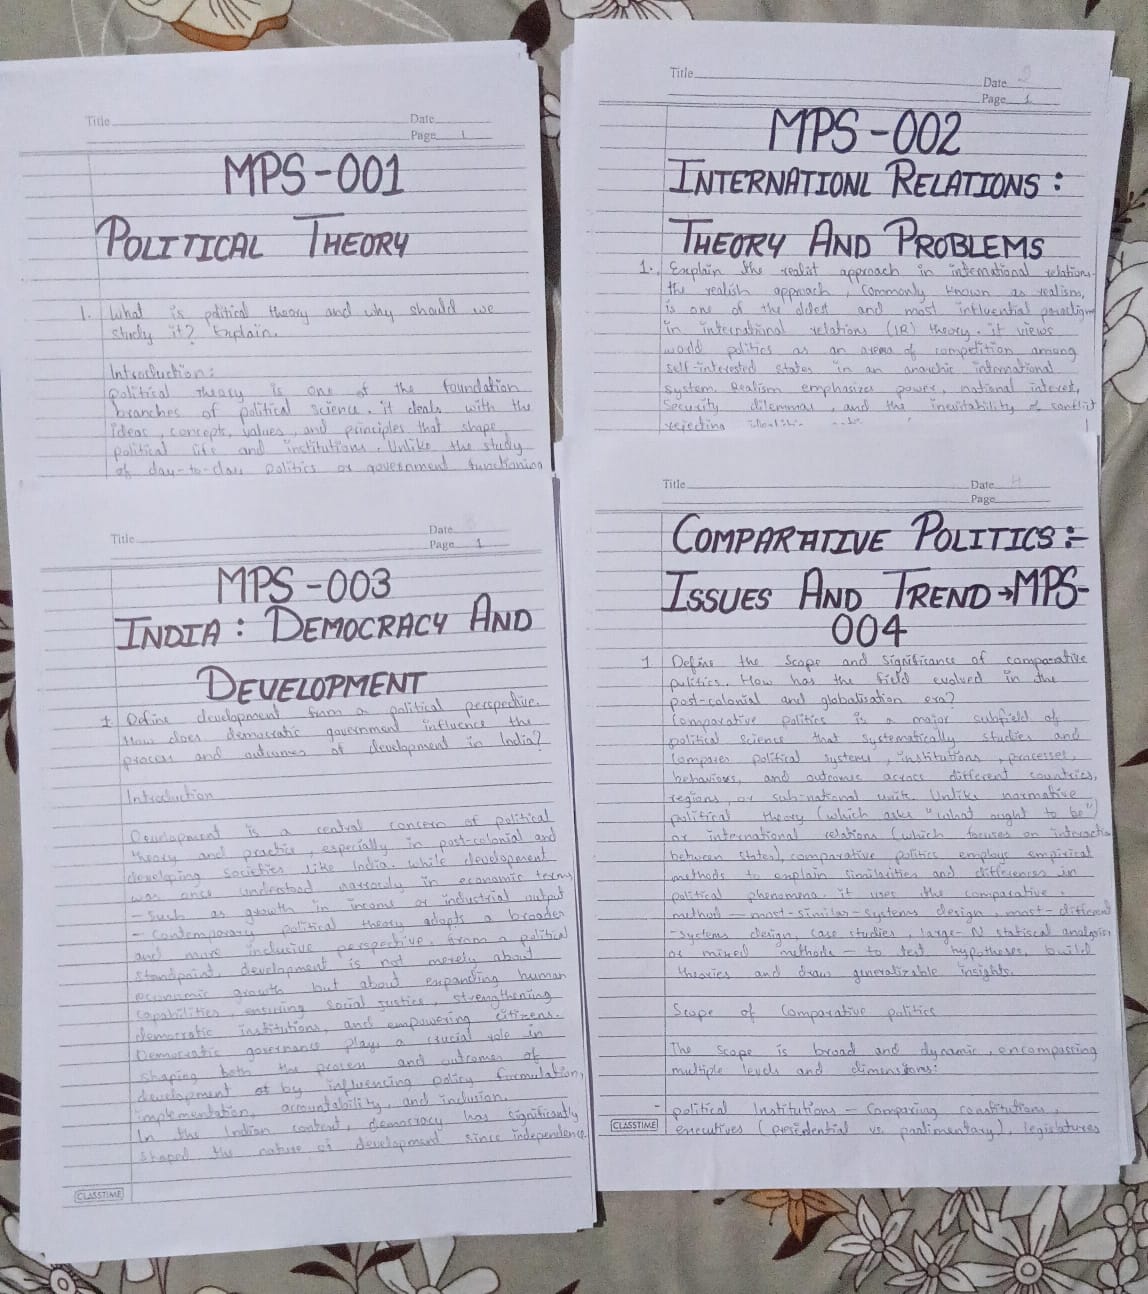 Title
Date
Page 1
MPS-001
POLITICAL THEORY
1. What is political theory and why should we
study it? Explain.
Introduction:
political theory is one of the foundation
branches of political science. it deals with the
ideas, concepts, values, and principles that shape
political life and institutions. Unlike the study
of day-to-day politics or government functioning
Title
Date
Page 1
MPS-002
INTERNATIONL RELATIONS:
THEORY AND PROBLEMS
1. Explain the realist approach in international relations.
the realish approach, commonly known as realism,
is one of the oldest and most influential paradigm
in international relations (IR) theory. it views
world politics as an arena of competition among
self-interested states in an anarchic international
system. Realism emphasizes power, national interest,
Security dilemmas, and the inevitability of conflict
rejecting
Title
Date
Page 1
MPS-003
INDIA: DEMOCRACY AND
DEVELOPMENT
1. Define development from a political perspective.
How does democratic government influence the
process and outcomes of development in India?
Introduction
Development is a central concern of political
theory and practice, especially in post-colonial and
developing societies like India. while development
was once understood narrowly in economic terms
- Such as growth in income or industrial output
- contemporary political theory adopts a broader
and more inclusive perspective. from a political
standpoint, development is not merely about
economic growth but about expanding human
capabilities, ensuring social justice, strengthening
democratic institutions, and empowering citizens.
Democratic governance plays a crucial role in
shaping both the process and outcomes of
development by influencing policy formulation,
implementation, accountability, and inclusion.
In the Indian context, democracy has significantly
shaped the nature of development since independence.
CLASSTIME
Title
Date 4
Page
COMPARATIVE POLITICS:-
ISSUES AND TREND→MPS-
004
1 Define the Scope and significance of comparative
politics. How has the field evolved in the
post-colonial and globalisation era?
Comparative politics is a major subfield of
political science that systematically studies and
compares political systems, institutions, processes,
behaviours, and outcomes across different countries,
regions, or sub-national units. Unlike normative
political theory (which asks "what ought to be")
or international relations (which focuses on interactio
between states), comparative politics employs empirical
methods to explain similarities and differences in
political phenomena. it uses the comparative
method — most-similar-systems design, most-different
-systems design, case studies, large-N statiscal analysis,
or mixed methods — to test hypotheses, build
theories and draw generalizable insights.
Scope of Comparative politics
The scope is broad and dynamic, encompassing
multiple levels and dimensions:
- political Institutions - Comparing constitutions,
executives (presidential vs. parlimentary), legislatures
CLASSTIME